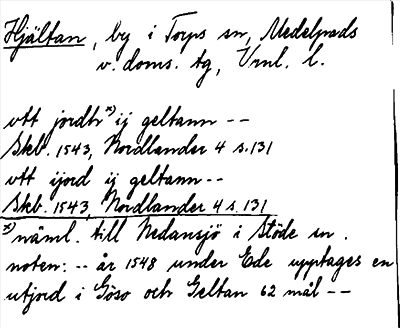 Hjältan, by i Torps sn, Medelpads
v. doms. tg, Vrnl. l.
ott jordtr x) ij geltann --
Skb. 1543, Nordlander 4 s. 131
ott ijord ij geltann --
Skb. 1543, Nordlander 4 s. 131
x) näml. till Nedansjö i Stöde sn.
noten: -- år 1548 under Ede upptages en
utjord i Göso och Geltan 62 mål --